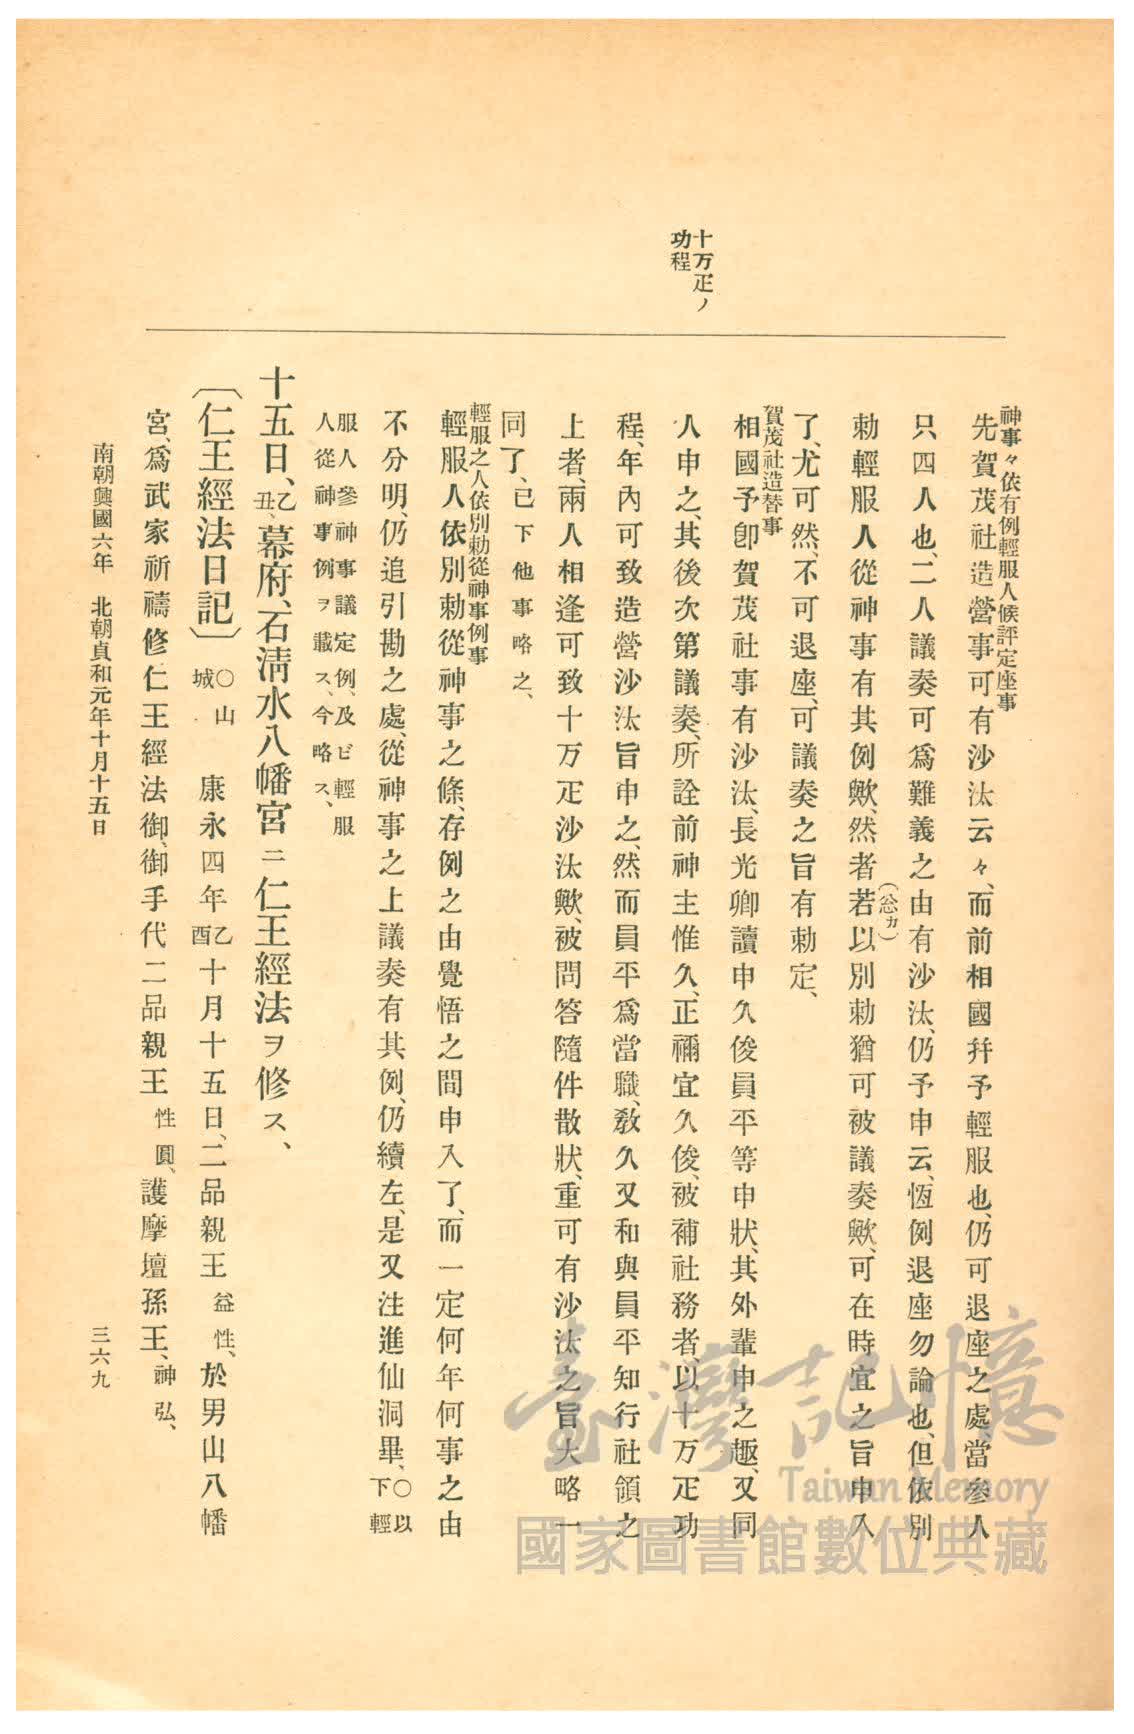 十万疋ノ
功程
神事々依有例輕服人候評定座事
先賀茂社造營事可有沙汰云々、而前相國幷予輕服也、仍可退座之處、當參人
只四人也、二人議奏可爲難義之由有沙汰、仍予申云、恆例退座勿論也、但依別
勅輕服人從神事有其例歟、然者若以別勅猶可被議奏歟、可在時宜之旨申入
(忩カ)
了、尤可然、不可退座、可議奏之旨有勅定、
賀茂社造替事
相國予卽賀茂社事有沙汰、長光卿讀申久俊員平等申狀、其外輩申之趣、又同
人申之、其後次第議奏、所詮前神主惟久、正禰宜久俊、被補社務者、以十万疋功
程、年內可致造營沙汰旨申之、然而員平爲當職、敎久又和與員平知行社領之
上者、兩人相逢可致十万疋沙汰歟、被問答隨件散狀、重可有沙汰之旨大略一
同了、已下他事略之、
輕服之人依別勅從神事例事
輕服人依別勅從神事之條、存例之由覺悟之間申入了、而一定何年何事之由
不分明、仍追引勘之處、從神事之上議奏有其例、仍續左、是又注進仙洞畢、○以下輕
服人參神事議定例、及ビ輕服
人從神事例ヲ載ス、今略ス、
十五日、乙丑、幕府、石淸水八幡宮ニ仁王經法ヲ修ス、
〔仁王經法日記〕○山城 康永四年乙酉十月十五日、二品親王益性、於男山八幡
宮、爲武家祈禱修仁王經法御、御手代二品親王性圓、護摩壇孫王、神弘、
南朝興國六年 北朝貞和元年十月十五日
三六九
臺灣記憶
Taiwan Memory
國家圖書館數位典藏